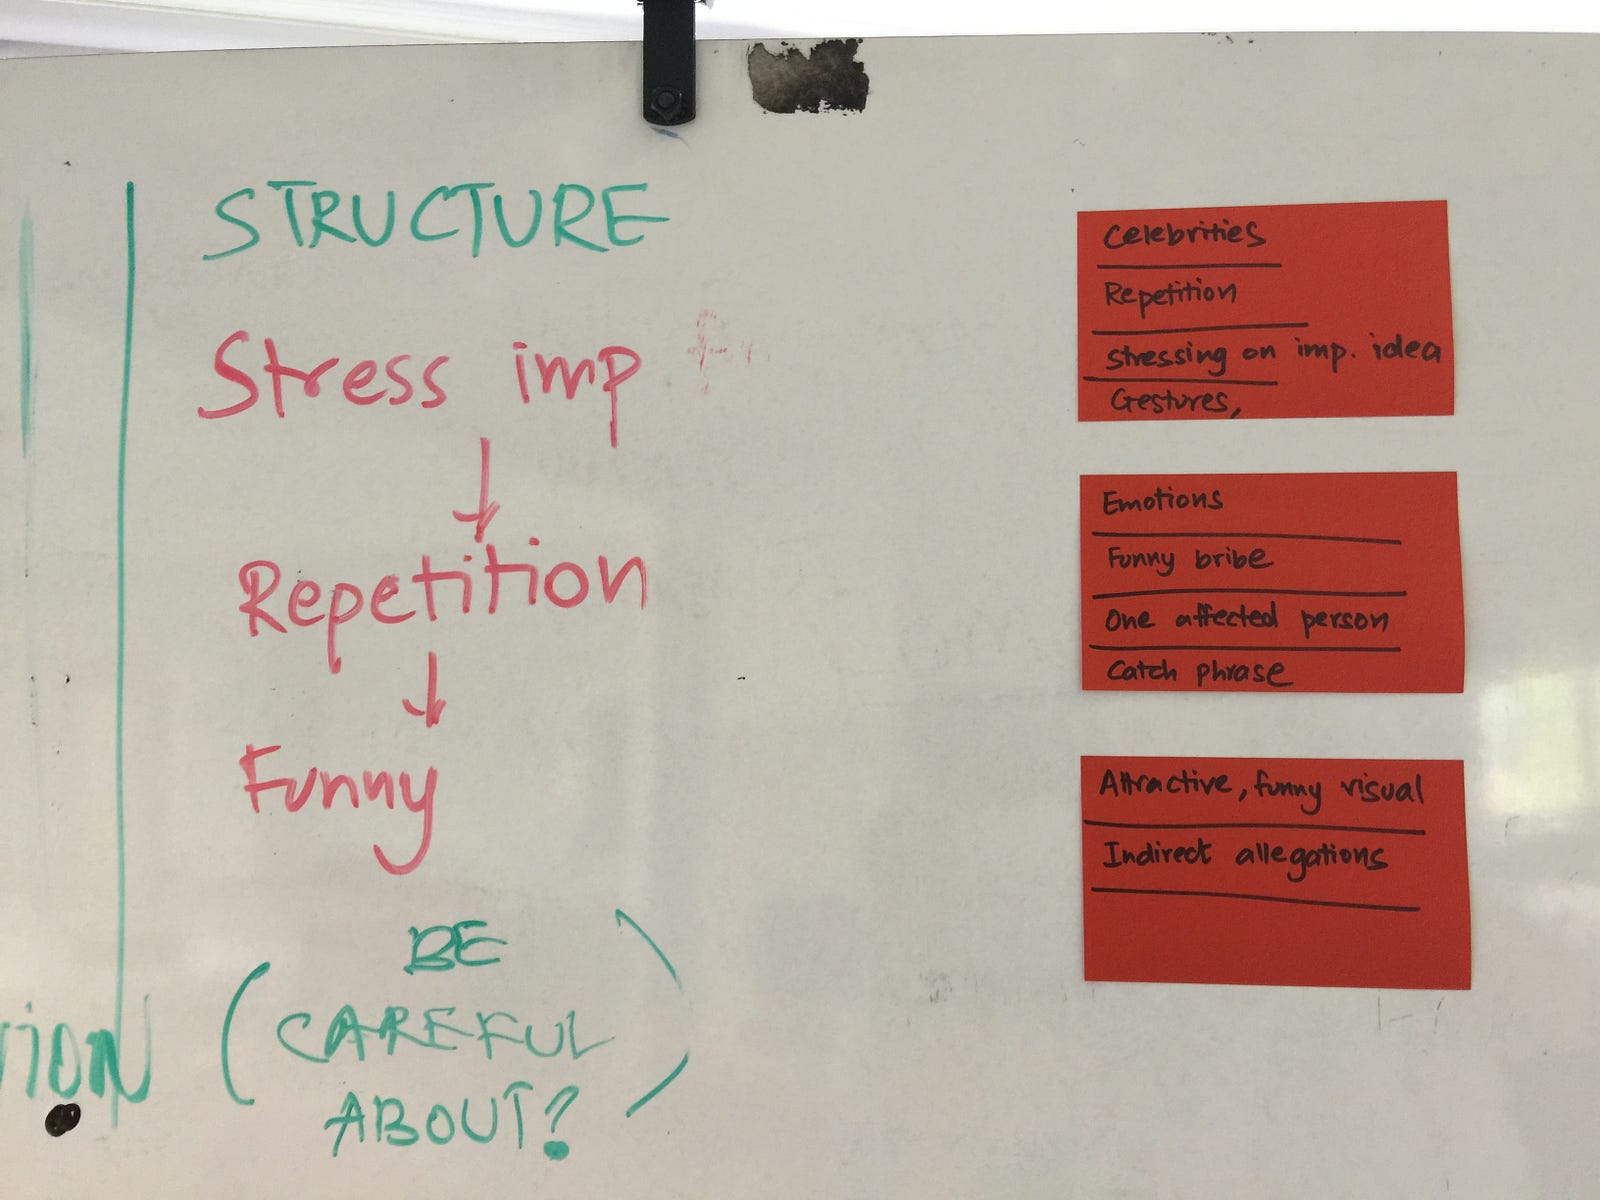 STRUCTURE
Stress imp
Repetition
Funny
BE
(CAREFUL)
ABOUT?
Celebrities
Repetition
Stressing on imp. idea
Gestures,
Emotions
Funny bribe
One affected person
Catch phrase
Attractive, funny visual
Indirect allegations